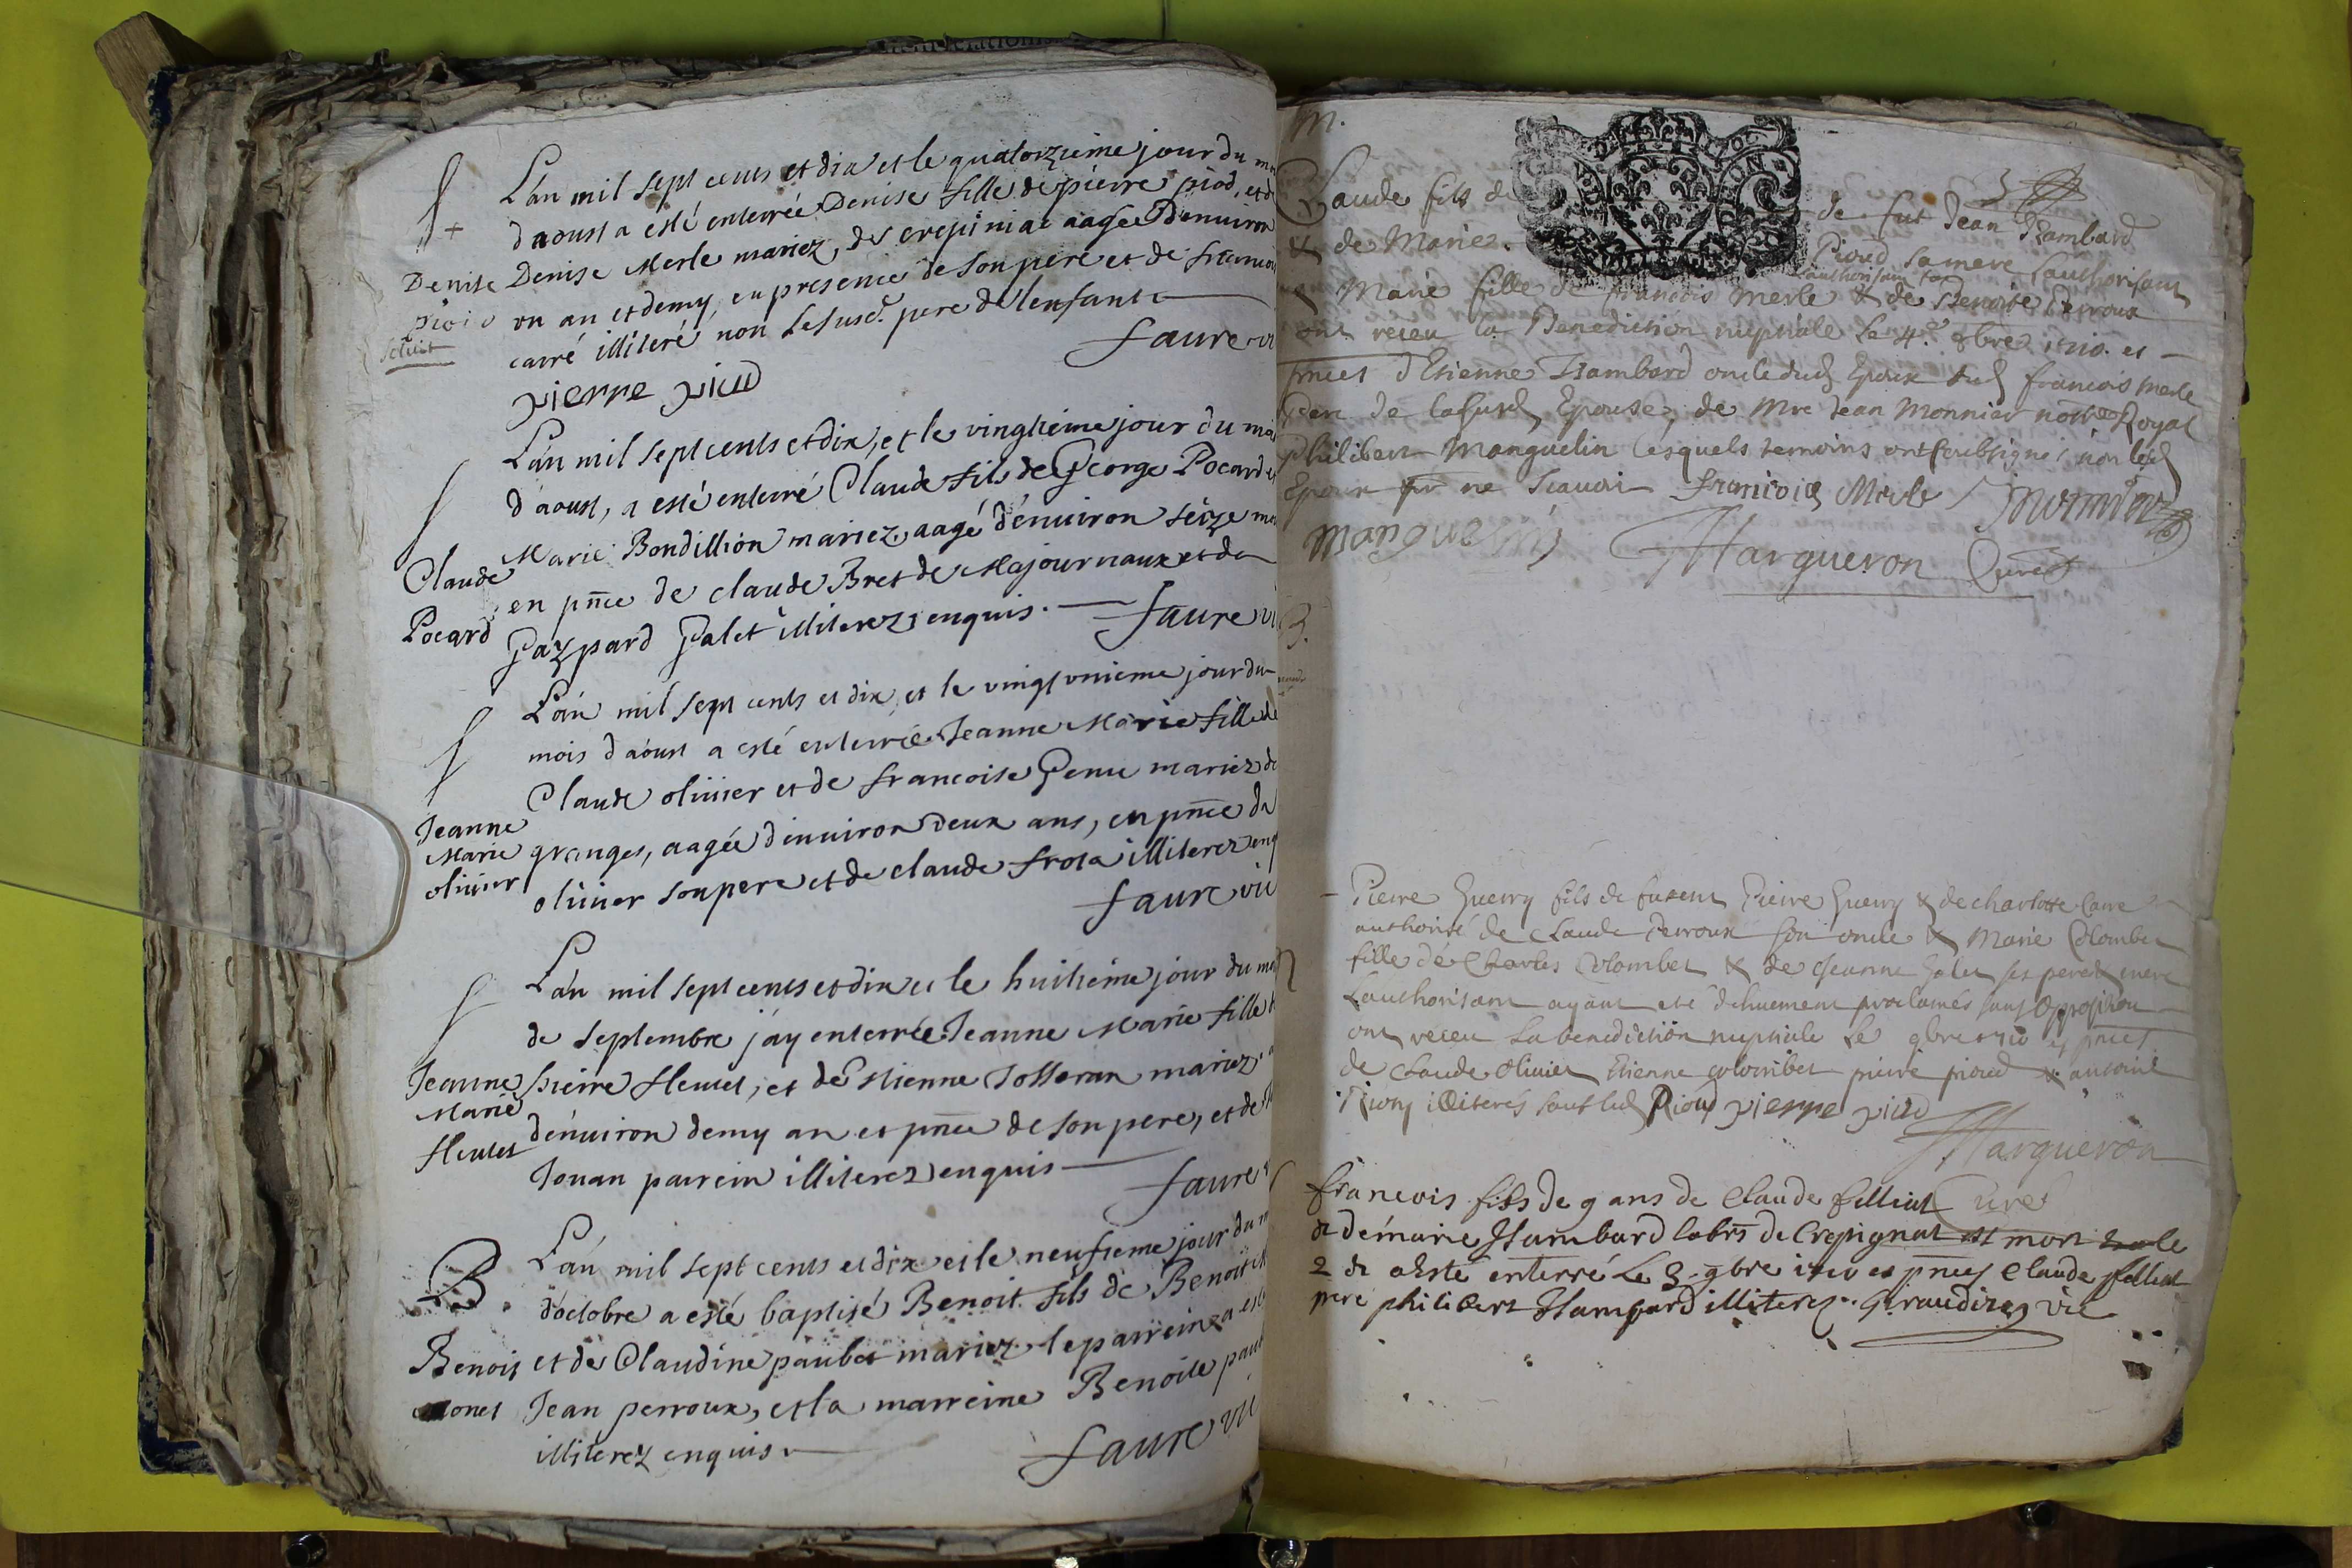 L'an mil sept cents et dix et le quatorzieme jour du
d'aoust a esté enterrée Denise fille de pierre piod, et de
Denise Denise Merle mariez, de crepiniat aagée d'enuiron
piod un an et demy, en presence de son pere et de francois
carré illiteré non le susd. pere de l'enfant
faure vi
pierre piod
L'an mil sept cents et dix, et le vingtieme jour du
d'aoust, a esté enterré Claude fils de George Pocard et
Marie Bondillion mariez, aagé d'enuiron seize
Claude en pnce de claude Bret de Majournaux et de
Pocard Gazpard Galet illiterez enquis. faure vi
L'an mil sept cents et dix, et le vingt unieme jour du
mois d'aoust a esté enterrée Jeanne Marie fille de
Claude oliuier et de francoise Genu mariez de
Jeanne
Marie granges, aagée d'enuiron deux ans, en pnce de
oliuier oliuier son pere et de claude frota illiterez enq
faure vic
L'an mil sept cents et dix et le huitieme jour du
de septembre j'ay enterrée Jeanne Marie fille
Jeanne pierre fleutet, et de Estienne Josseran mariez
Marie
fleutet d'enuiron demy an et pnce de son pere, et de
Jouan parrein illiterez enquis
faure
B. L'an mil sept cents et dix et le neufieme jour du
d'octobre a esté baptisé Benoit fils de Benoit
Benoit et de Claudine paubet mariez. le parrein a esté
monet Jean perroux, et la marreine Benoite
illiterez enquis
faure vic
m.
3
Claude fils de de fut Jean Hambard
& de Marie Pioud sa mere l'authorisant
Marie fille de francois Merle & de Benoite Perroux
ont receu la Benediction nuptiale le 4e 9bre 1710. es
pnces d'Etienne Hambard oncle dud Epoux dud francois Merle
pere de lasusd Epouse, de Mre Jean Monnier notre Royal
philibert Manguelin lesquels temoins ont soubsigné non led
Epoux pour ne scauoir francois Merle Monnier
manguelin Margueron Curé
Pierre Guerry fils de Pierre Guerry & de charlotte Carre
authorisé de Claude Perroux son oncle & Marie Colombet
fille de Charles Colombet & de Jeanne Galet ses pere & mere
l'authorisant ayant eté dehuement proclamés sans opposition
ont receu la benediction nuptiale le 9bre 1710 es pnces
de Claude Oliuier Etienne colombet pierre pioud & antoine
illiterés sauf led Pioud pierre piod
Margueron
Curé
francois fils de 9 ans de Claude felliat
& de marie Hambard labrs de Crepignat est mort le
2 & a esté enterré Le 3. 9bre 1710 es pnces Claude felliat
pere philibert Hambard illiterez. Giraudire vic